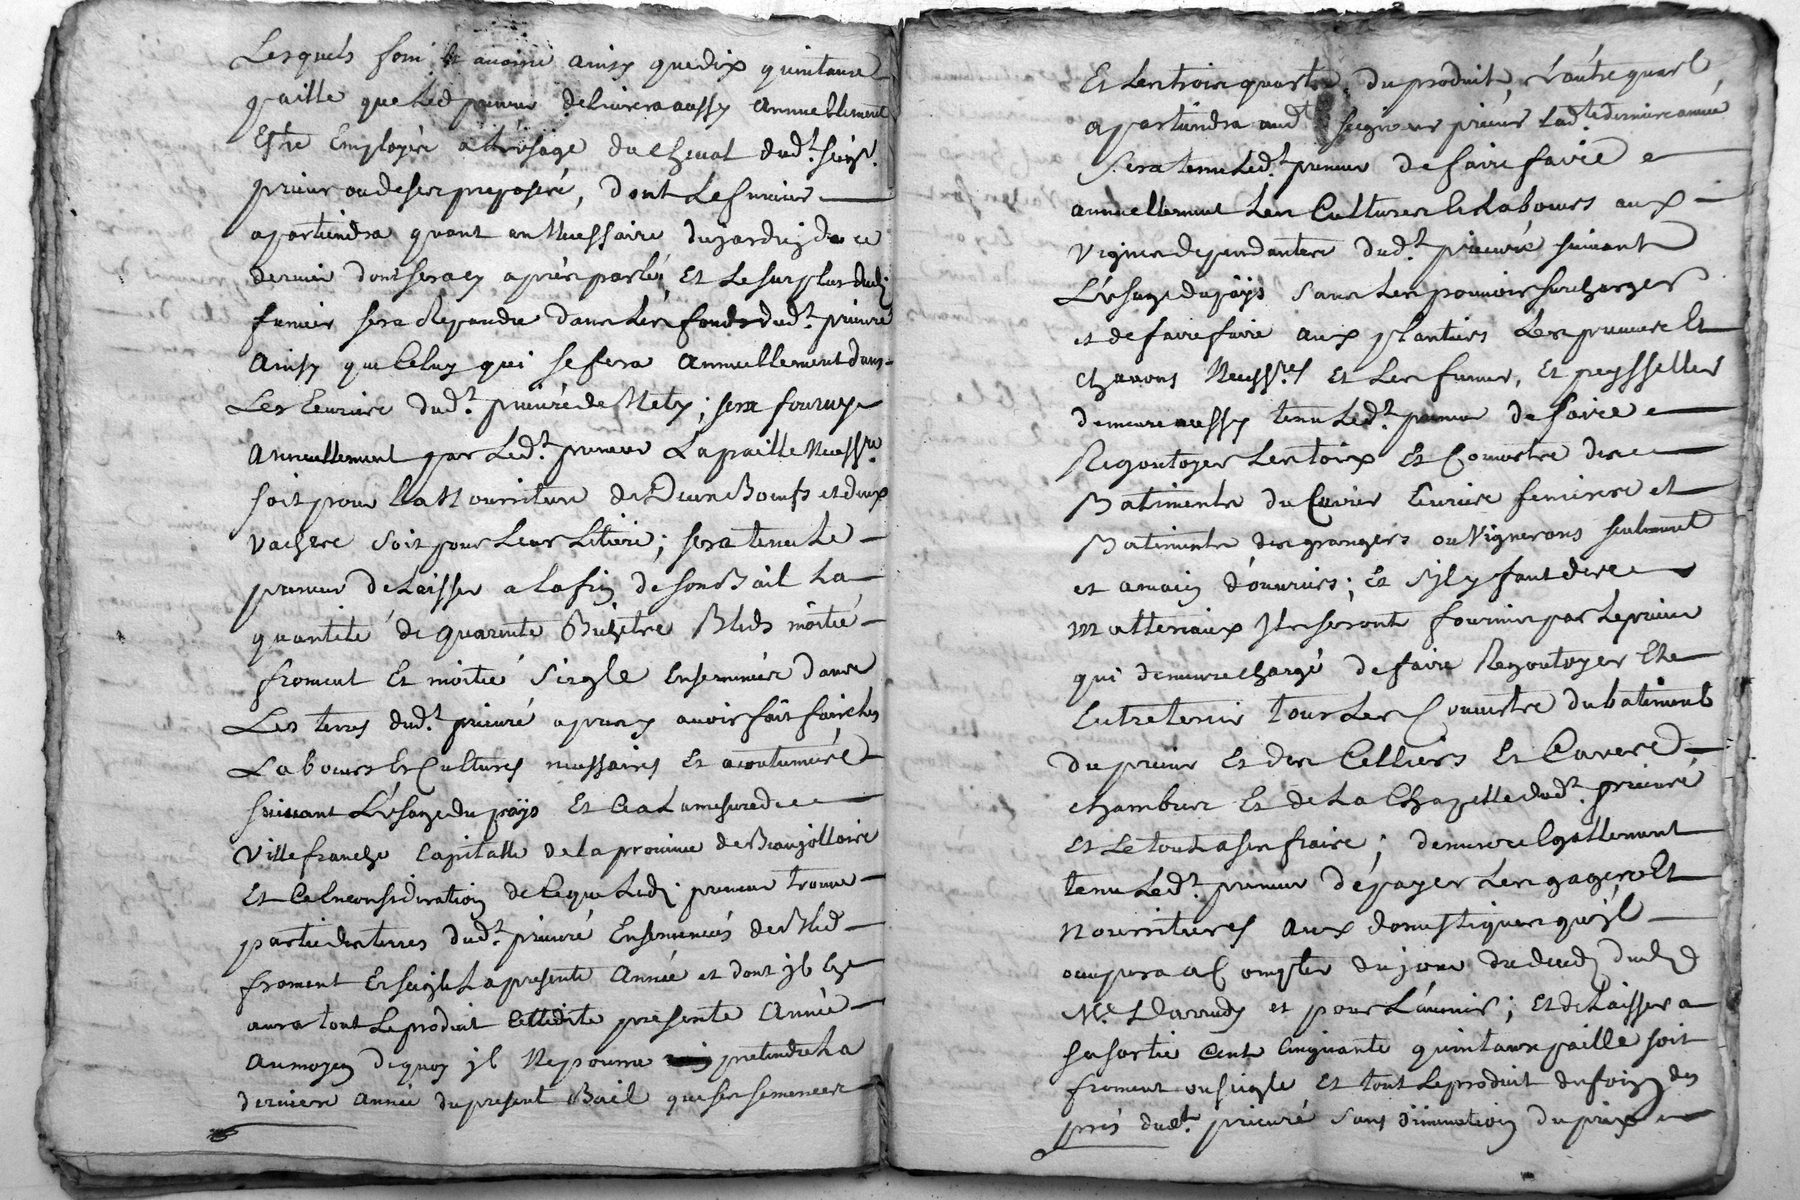 Lesquels foin et avoine ainsy que dix quintaux
paille que led preneur delivrera aussy annuellement
Estre Employés a l'usage du cheval dud.t seig.r
prieur ou de ses preposés, dont le fumier
apartiendra quant au Necessaire du jardin de ce
dernier dont sera cy après parlé, Et le surplus dud
fumier sera Repandu dans les fonds dud.t prieuré
Ainsy que Celuy qui se fera Annuellement dans
Les Ecuries dud.t prieuré de Nety; sera fournye
Annuellement par Led.t preneur La paille Necess.re
soit pour la Nourriture des Deux Boeufs et deux
vaches soit pour Leur Litiere; sera tenu Le
preneur de Laisser a la fin de son Bail La
quantité de quarente Bichets Bleds moitié
froment Et moitié Siegle Ensemencés dans
Les terres dud.t prieuré apres y avoir fait faire les
Labours Et Cultures necessaires Et acoutumées
suivant L'usage du pays Et Ce a La mesure de
Villefranche Capitalle de la province de Beaujollois
Et Ce En consideration de Ce que Led. preneur trouve
partie des terres dud.t prieuré Ensemencés de Bled
froment Et seigle La presente Année et dont jl
aura tout Le produit Cettedite presente Année
Au moyen de quoy jl Ne pourra pretendre La
derniere Année du present Bail que ses semences
Et Les trois quarts du produit, & l'autre quart
apartiendra aud.t seigneur prieur Lad.te derniere année
Sera tenu Led.t preneur de faire faire
annuellement Les Cultures & Labours aux
vignes dependantes dud.t prieuré suivant
L'usage du pays sans Les pouvoir surcharger
et de faire faire aux plantiers Les preuves Et
chavons Necess.res Et Les fumer, Et peysseller
demeure aussy tenu Led.t preneur de faire
Regoutoyer Les toix Et Couverts des
Batiments du Cuvier Ecuries feniere et
Batiments des grangers ou Vignerons seulement
et a main d'ouvriers; Et s'jl y faut des
Matteriaux Jls seront fournis par Le prieur
qui demeure chargé de faire Regoutoyer Et
Entretenir tous Les Couverts du batiment
du prieur Et des Celliers Et Caves
chambres Et de La Chapelle dud.t prieuré
Et Le tout a ses fraix; demeure Egallement
tenu Led.t preneur de payer Les gages Et
Nourritures Aux domestiques qu'jl
ocupera a Compter du jour du deced dud
M.e Darrudy et pour L'avenir; Et de Laisser a
sa sortie Cent Cinquante quintaux paille soit
froment ou seigle Et tout Le produit du foin des
prés dud.t prieuré sans diminution du prix